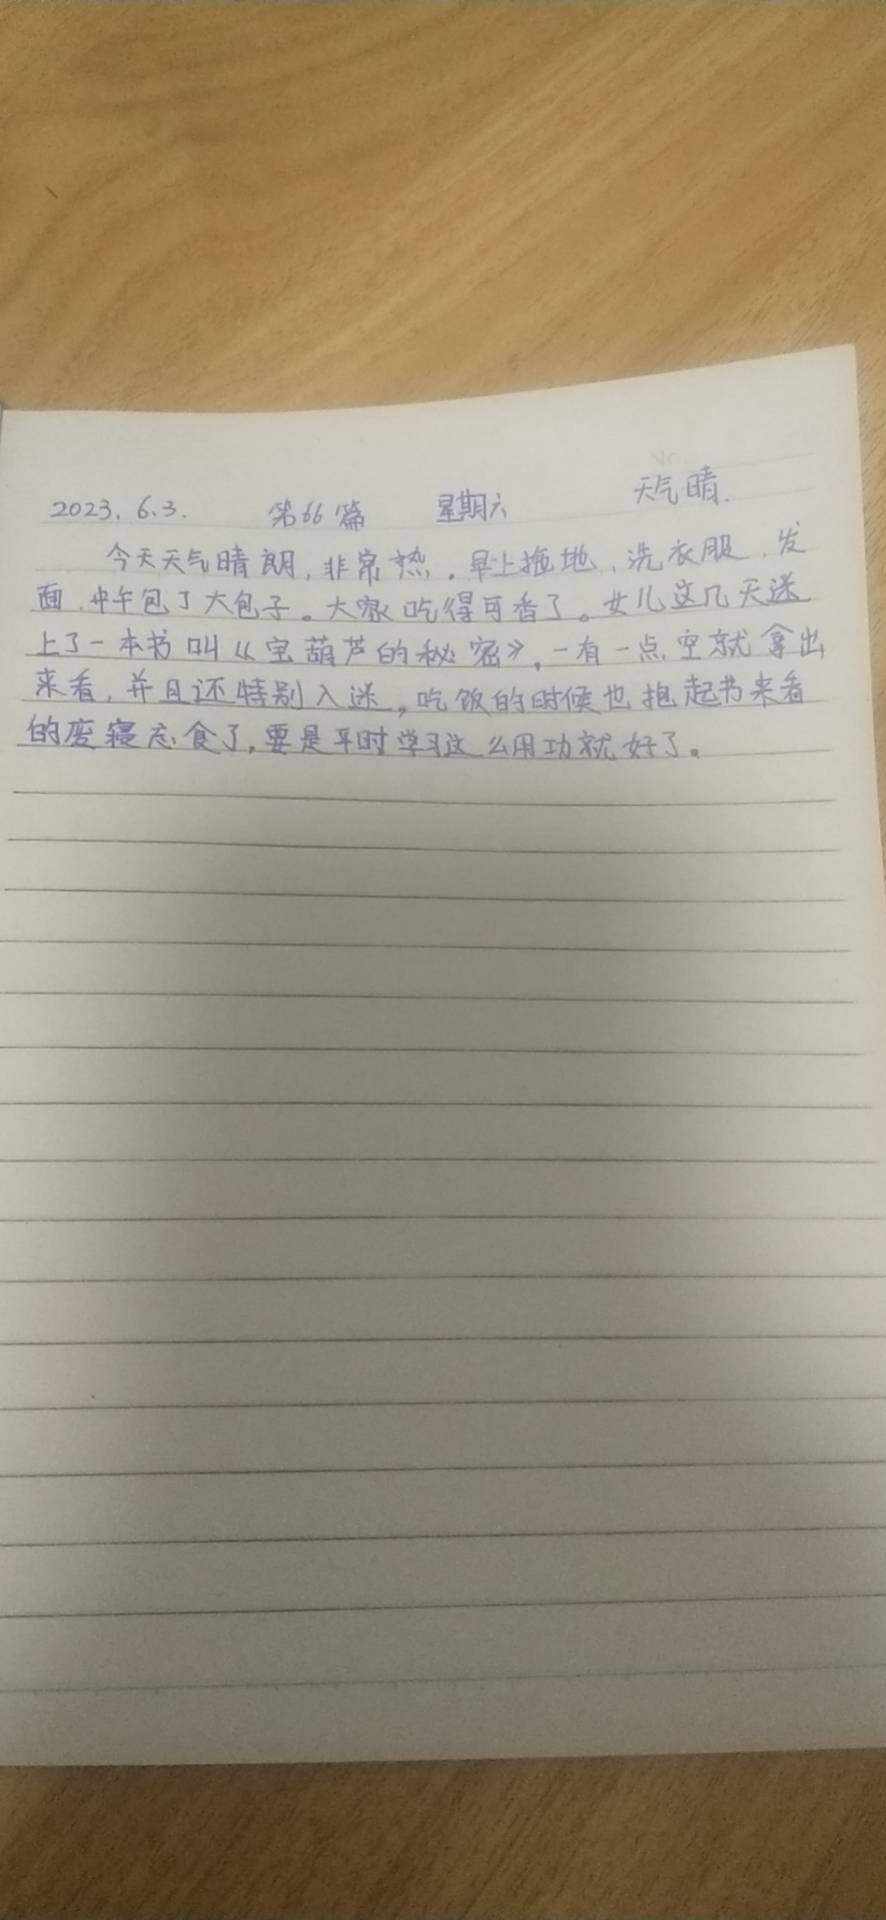 2023.6.3. 第66篇 星期六 天气晴.
今天天气晴朗,非常热。早上拖地,洗衣服,发
面,中午包了大包子。大家吃得可香了。女儿这几天迷
上了一本书叫《宝葫芦的秘密》,一有一点空就拿出
来看,并且还特别入迷,吃饭的时候也抱起书来看
的废寝忘食了,要是平时学习这么用功就好了。